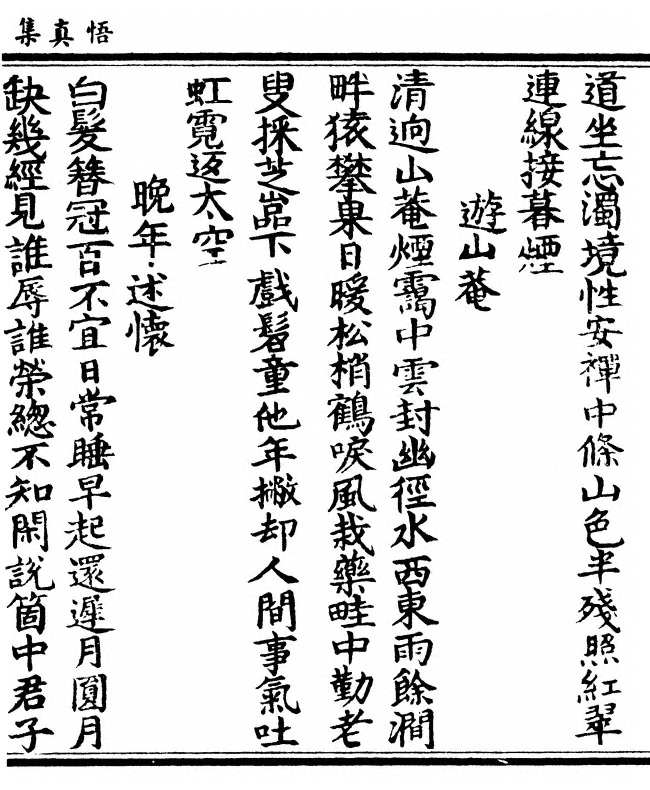 悟真集
道坐忘濁境性安禪中條山色半殘照紅翠
連線接暮煙
遊山菴
清逈山菴煙靄中雲封幽徑水西東雨餘澗
畔猿攀果日暖松梢鶴唳風栽藥畦中勤老
叟採芝嵓下戲髫童他年撇却人間事氣吐
虹霓返太空
晚年述懷
白髮簪冠百不宜日常睡早起還遲月圓月
缺幾經見誰辱誰榮總不知閑說箇中君子